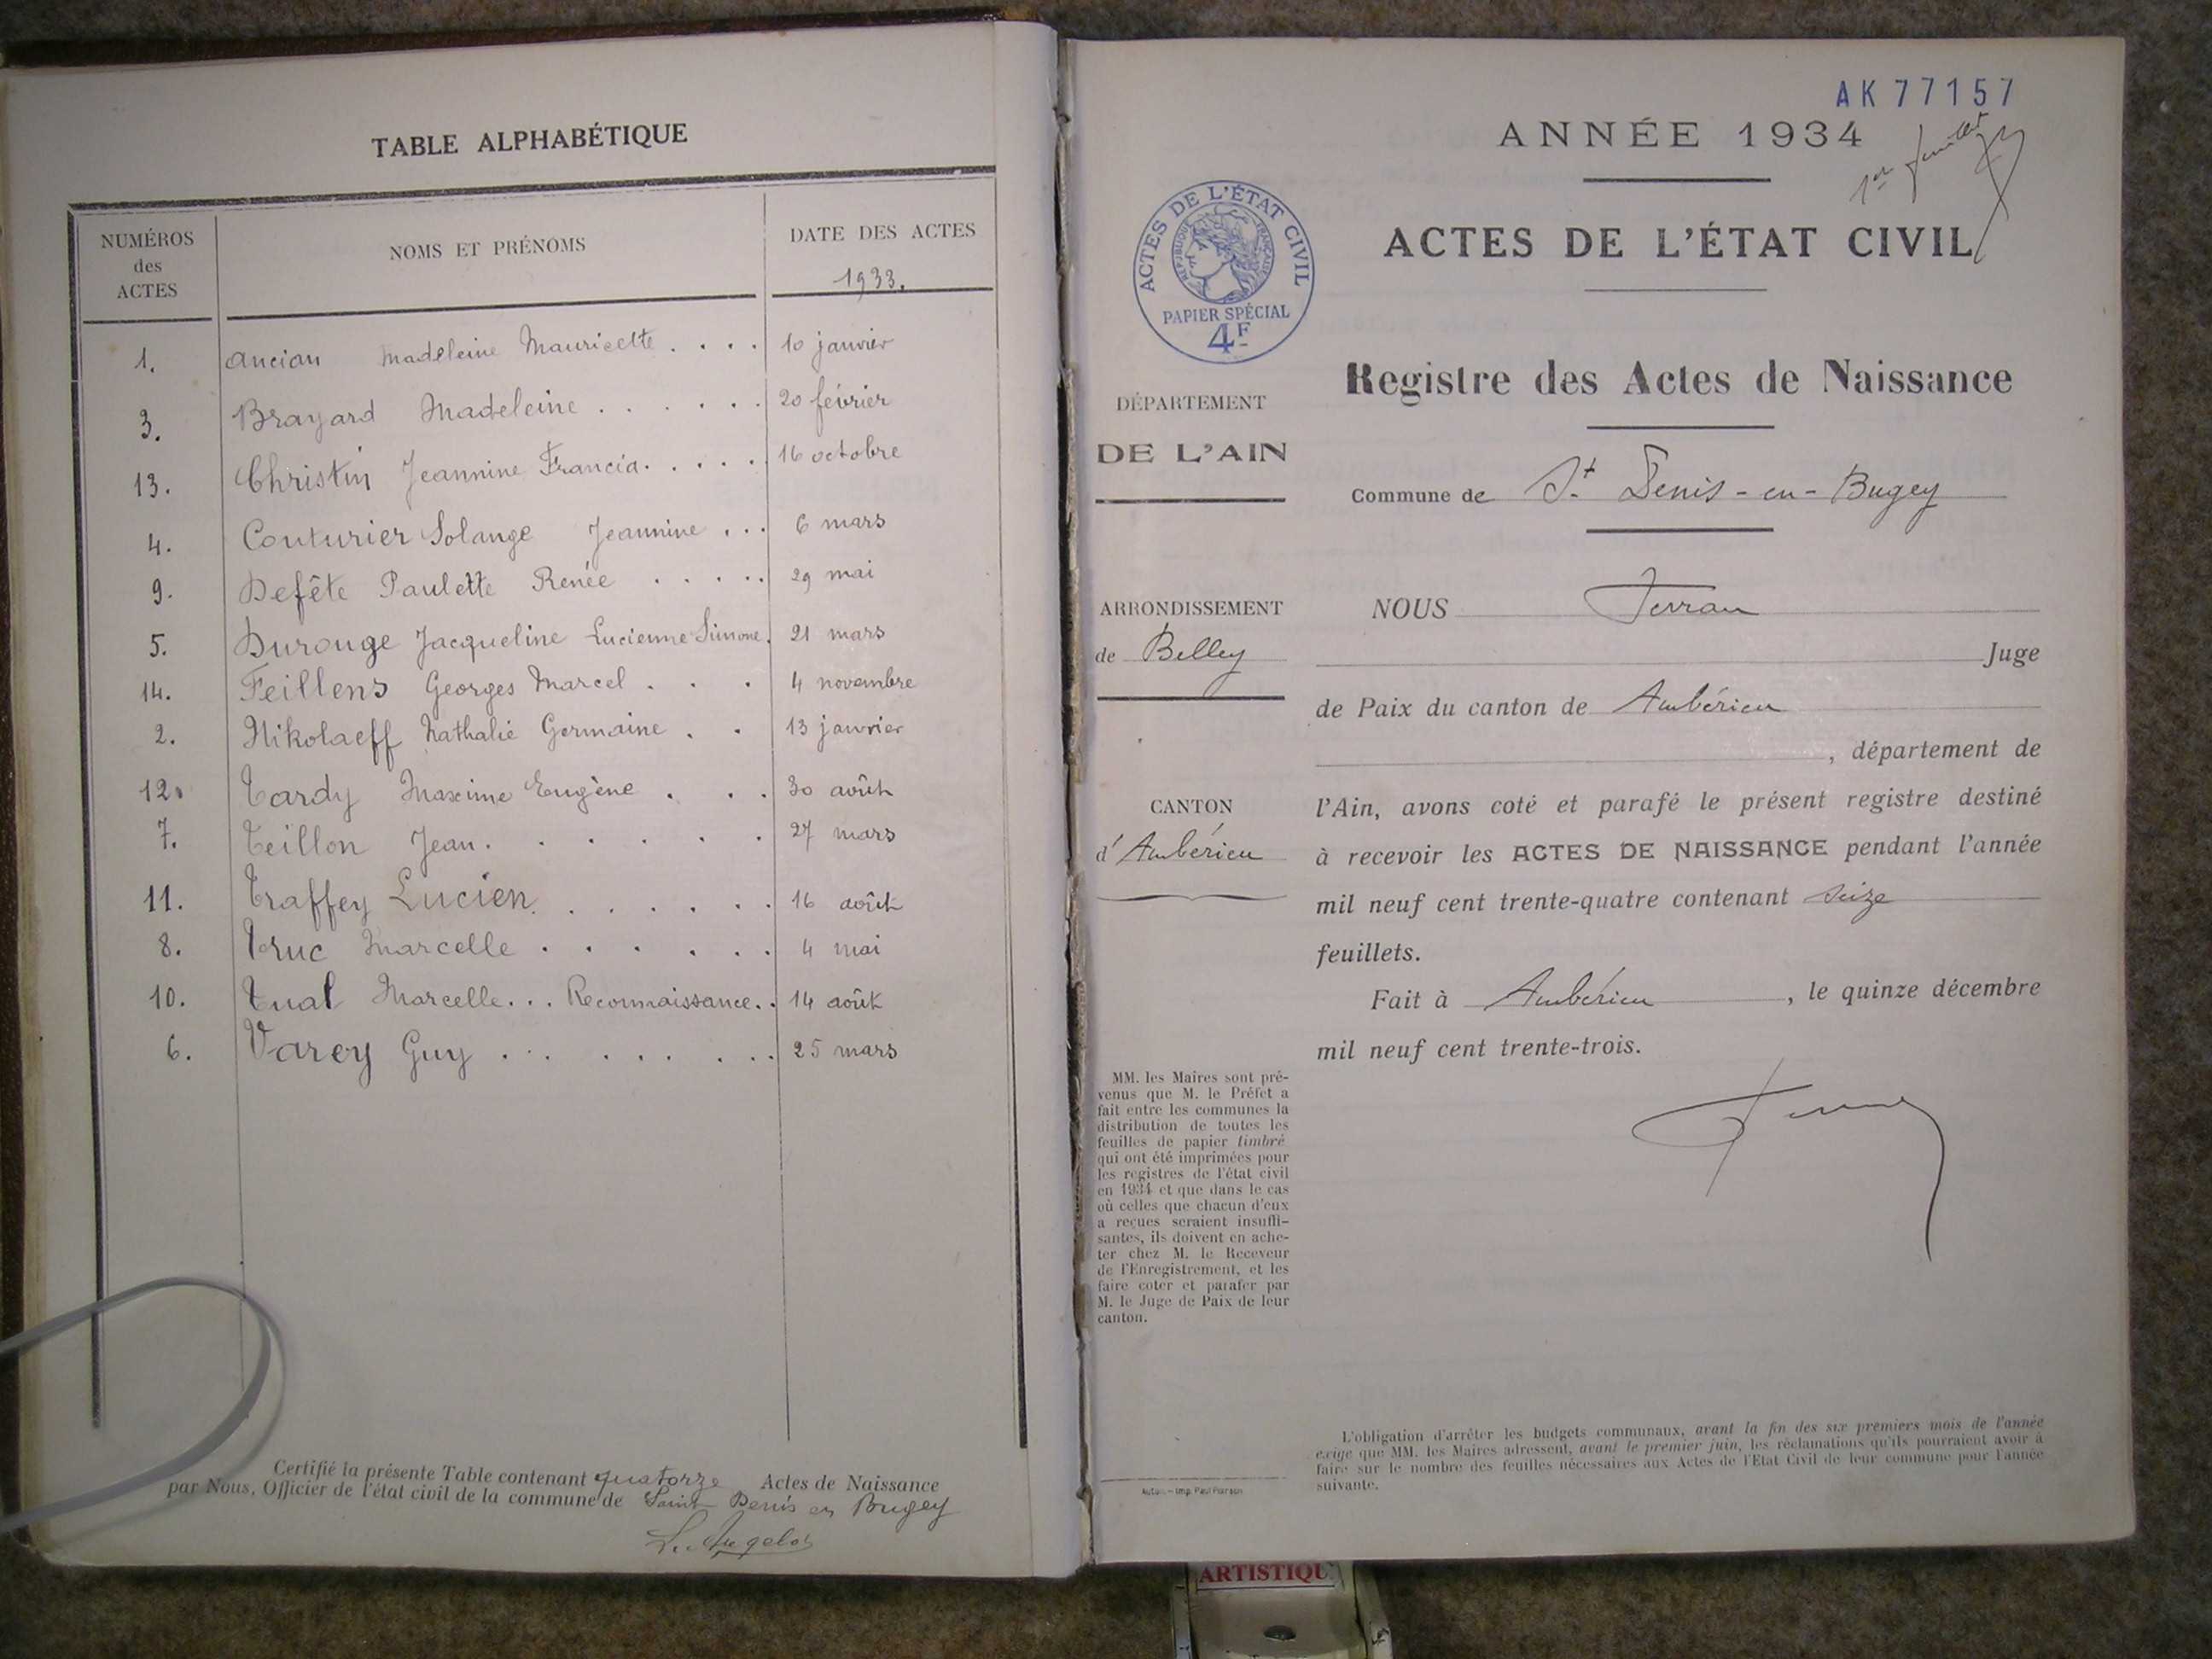 TABLE ALPHABÉTIQUE
NUMÉROS des ACTES
NOMS ET PRÉNOMS
DATE DES ACTES
1933.
1. Ancian Madeleine Mauricette . . . . 10 janvier
3. Brayard Madeleine . . . . . . 20 février
13. Christin Jeannine Francia. . . . . 16 octobre
4. Couturier Solange Jeannine . . . 6 mars
9. Defête Paulette Renée . . . . . 29 mai
5. Durouge Jacqueline Lucienne Simone. 21 mars
14. Feillens Georges Marcel . . . 4 novembre
2. Nikolaeff Nathalie Germaine . . 13 janvier
12. Tardy Maxime Eugène . . . 30 août
7. Teillon Jean. . . . . . 27 mars
11. Traffey Lucien. . . . . . . 16 août
8. Truc Marcelle . . . . . . 4 mai
10. Tual Marcelle. . . Reconnaissance. . 14 août
6. Varey Guy . . . . . . . . 25 mars
Certifié la présente Table contenant quatorze Actes de Naissance
par Nous, Officier de l'état civil de la commune de Saint Denis en Bugey
AK 77157
ANNÉE 1934
1er feuillet
ACTES DE L'ÉTAT CIVIL
ACTES DE L'ÉTAT CIVIL
RÉPUBLIQUE FRANÇAISE
PAPIER SPÉCIAL
4F
Registre des Actes de Naissance
DÉPARTEMENT
DE L'AIN
Commune de St Denis-en-Bugey
ARRONDISSEMENT
de Belley
CANTON
d'Ambérieu
NOUS Ferran
Juge
de Paix du canton de Ambérieu
, département de
l'Ain, avons coté et parafé le présent registre destiné
à recevoir les ACTES DE NAISSANCE pendant l'année
mil neuf cent trente-quatre contenant seize
feuillets.
Fait à Ambérieu, le quinze décembre
mil neuf cent trente-trois.
MM. les Maires sont pré-
venus que M. le Préfet a
fait entre les communes la
distribution de toutes les
feuilles de papier timbré
qui ont été imprimées pour
les registres de l'état civil
en 1934 et que dans le cas
où celles que chacun d'eux
a reçues seraient insuffi-
santes, ils doivent en ache-
ter chez M. le Receveur
de l'Enregistrement, et les
faire coter et parafer par
M. le Juge de Paix de leur
canton.
L'obligation d'arrêter les budgets communaux, avant la fin des six premiers mois de l'année
exige que MM. les Maires adressent, avant le premier juin, les réclamations qu'ils pourraient avoir à
faire sur le nombre des feuilles nécessaires aux Actes de l'Etat Civil de leur commune pour l'année
suivante.
Imp. Paul
ARTISTIQU